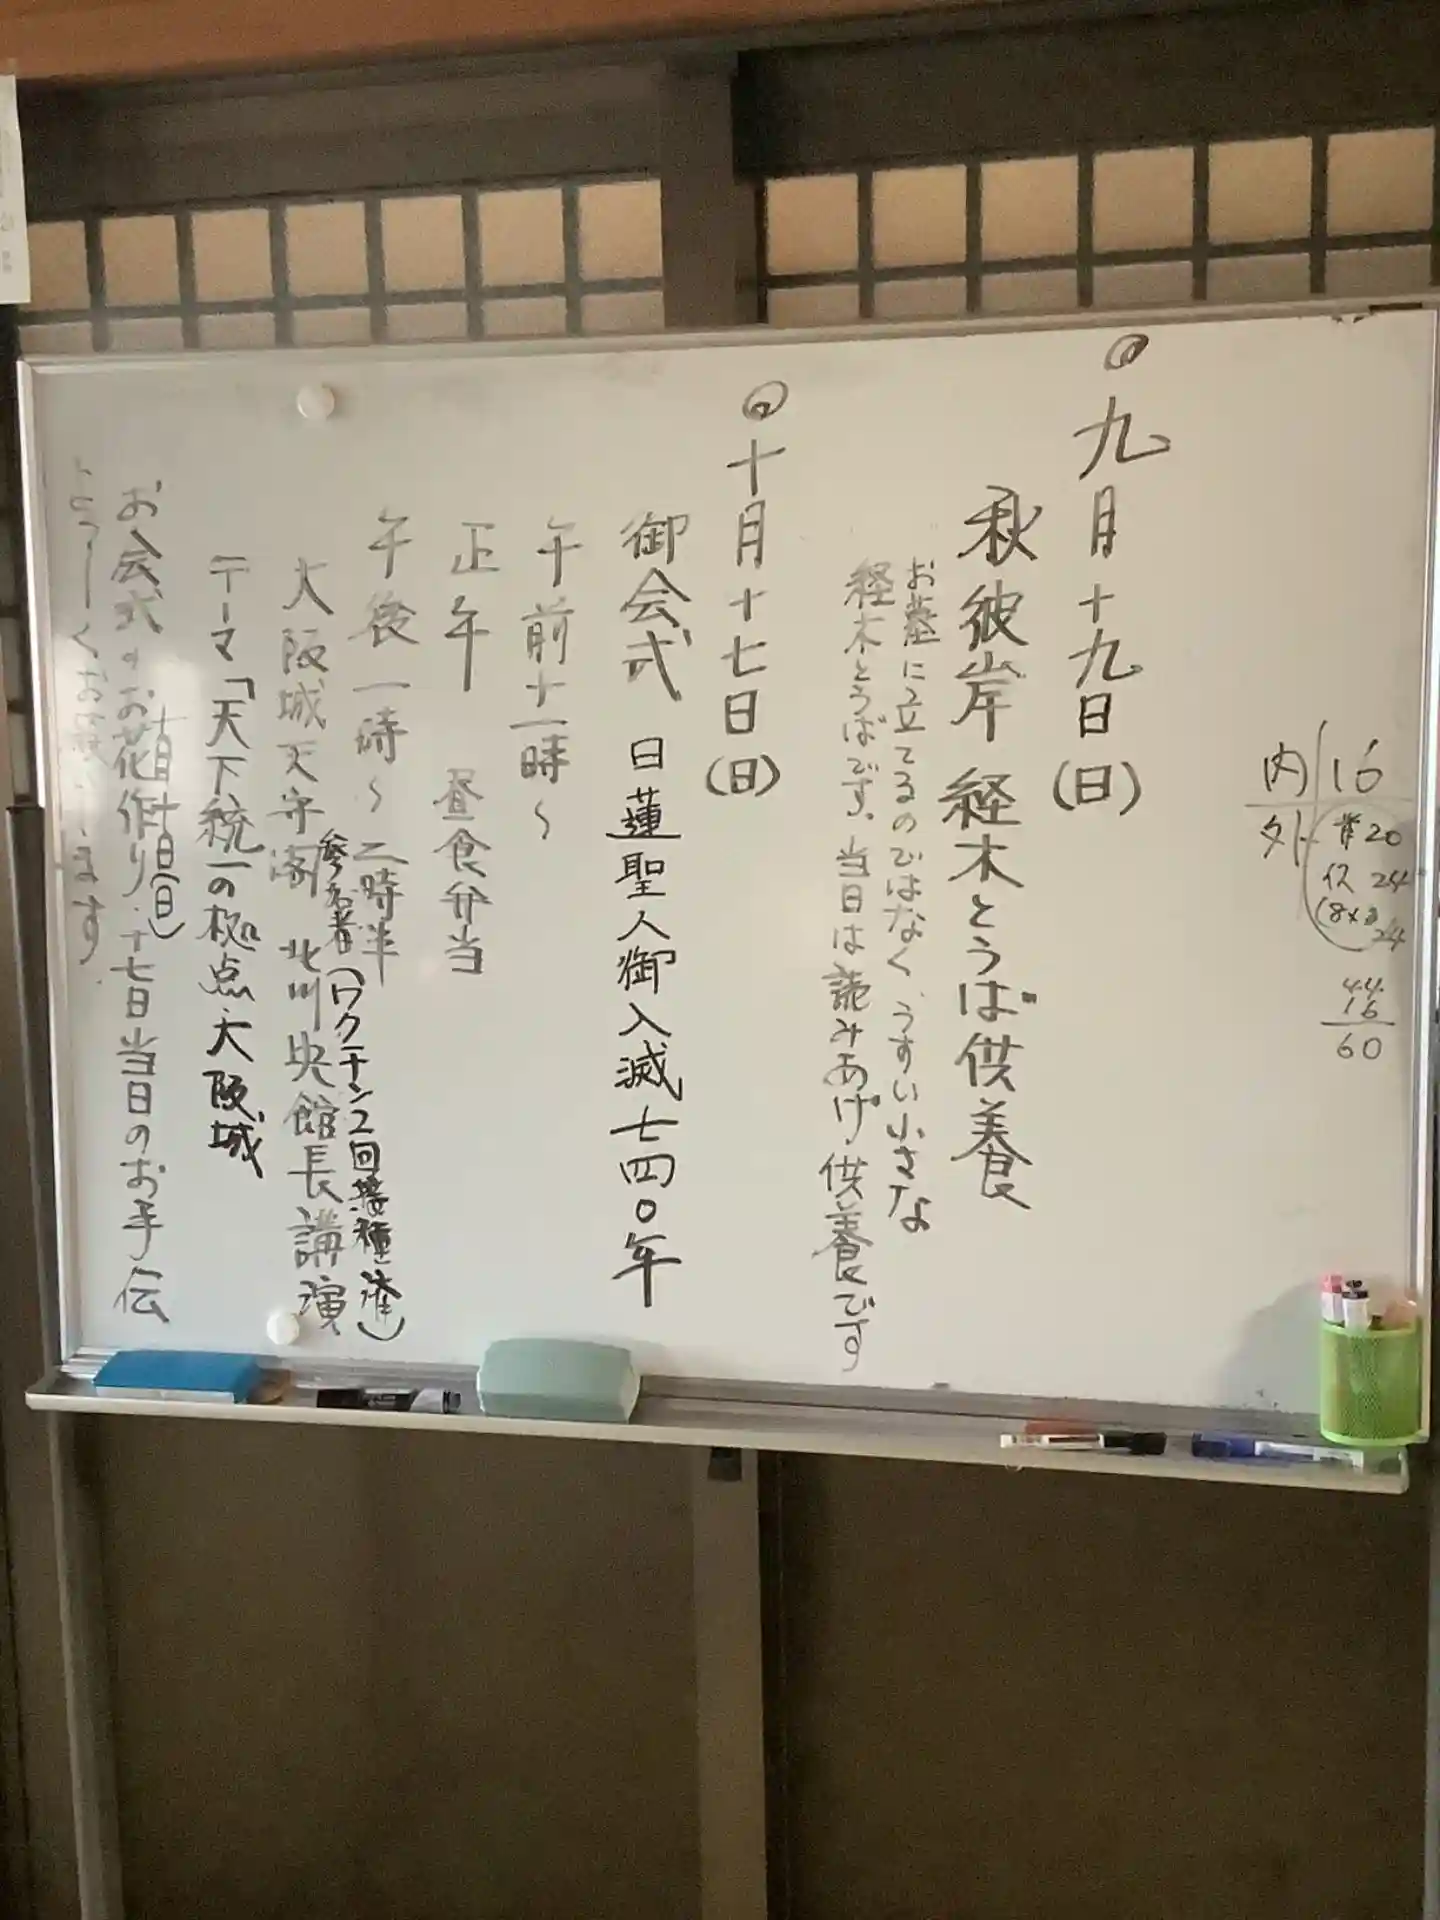 ◎九月十九日(日)
秋彼岸 経木とうば供養
お墓に立てるのではなく、うすい小さな
経木とうばです。当日は読みあげ供養です
◎十月十七日(日)
御会式 日蓮聖人御入滅七四〇年
午前十一時〜
正午 昼食弁当
午後一時〜二時半
参加者(ワクチン2回接種済)
大阪城天守閣 北川央館長講演
テーマ「天下統一の拠点・大阪城
十月十日(日)
お会式のお花作り・十七日当日のお手伝
よろしくお願いします.
内 16
外 20
24
24
44
16
60